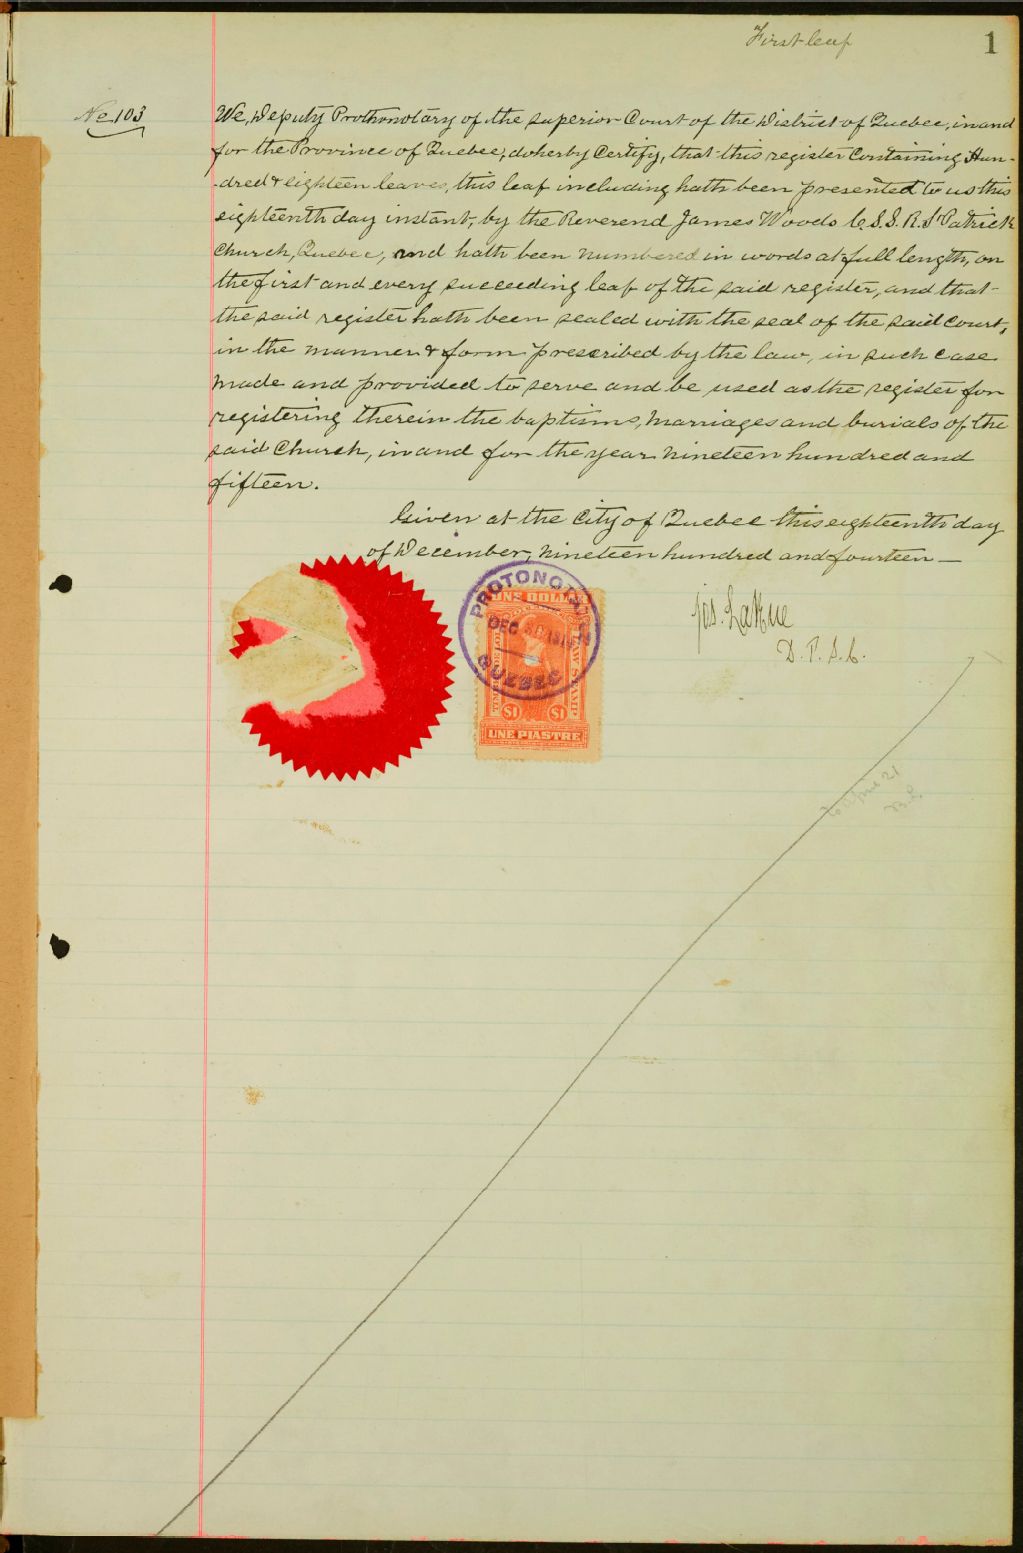 First leaf
1
No 103
We, Deputy Prothonotary of the Superior Court of the District of Quebec, in and
for the Province of Quebec, do herby Certify, that this register Containing Hun-
-dred & eighteen leaves, this leaf including hath been presented to us this
eighteenth day instant, by the Reverend James Woods C.S.S.R. St Patrick
Church, Quebec, and hath been numbered in words at full length, on
the first and every succeeding leaf of the said register, and that
the said register hath been sealed with the seal of the said Court,
in the manner & form prescribed by the law, in such case
made and provided to serve and be used as the register for
registering therein the baptisms, marriages and burials of the
said Church, in and for the year nineteen hundred and
fifteen.
Given at the City of Quebec this eighteenth day
of December, nineteen hundred and fourteen —
Jos. LaRue
D. P. S. C.
PROTONOTAIRE
DEC
QUEBEC
ONE DOLLAR
LAW STAMP
$1 $1
UNE PIASTRE